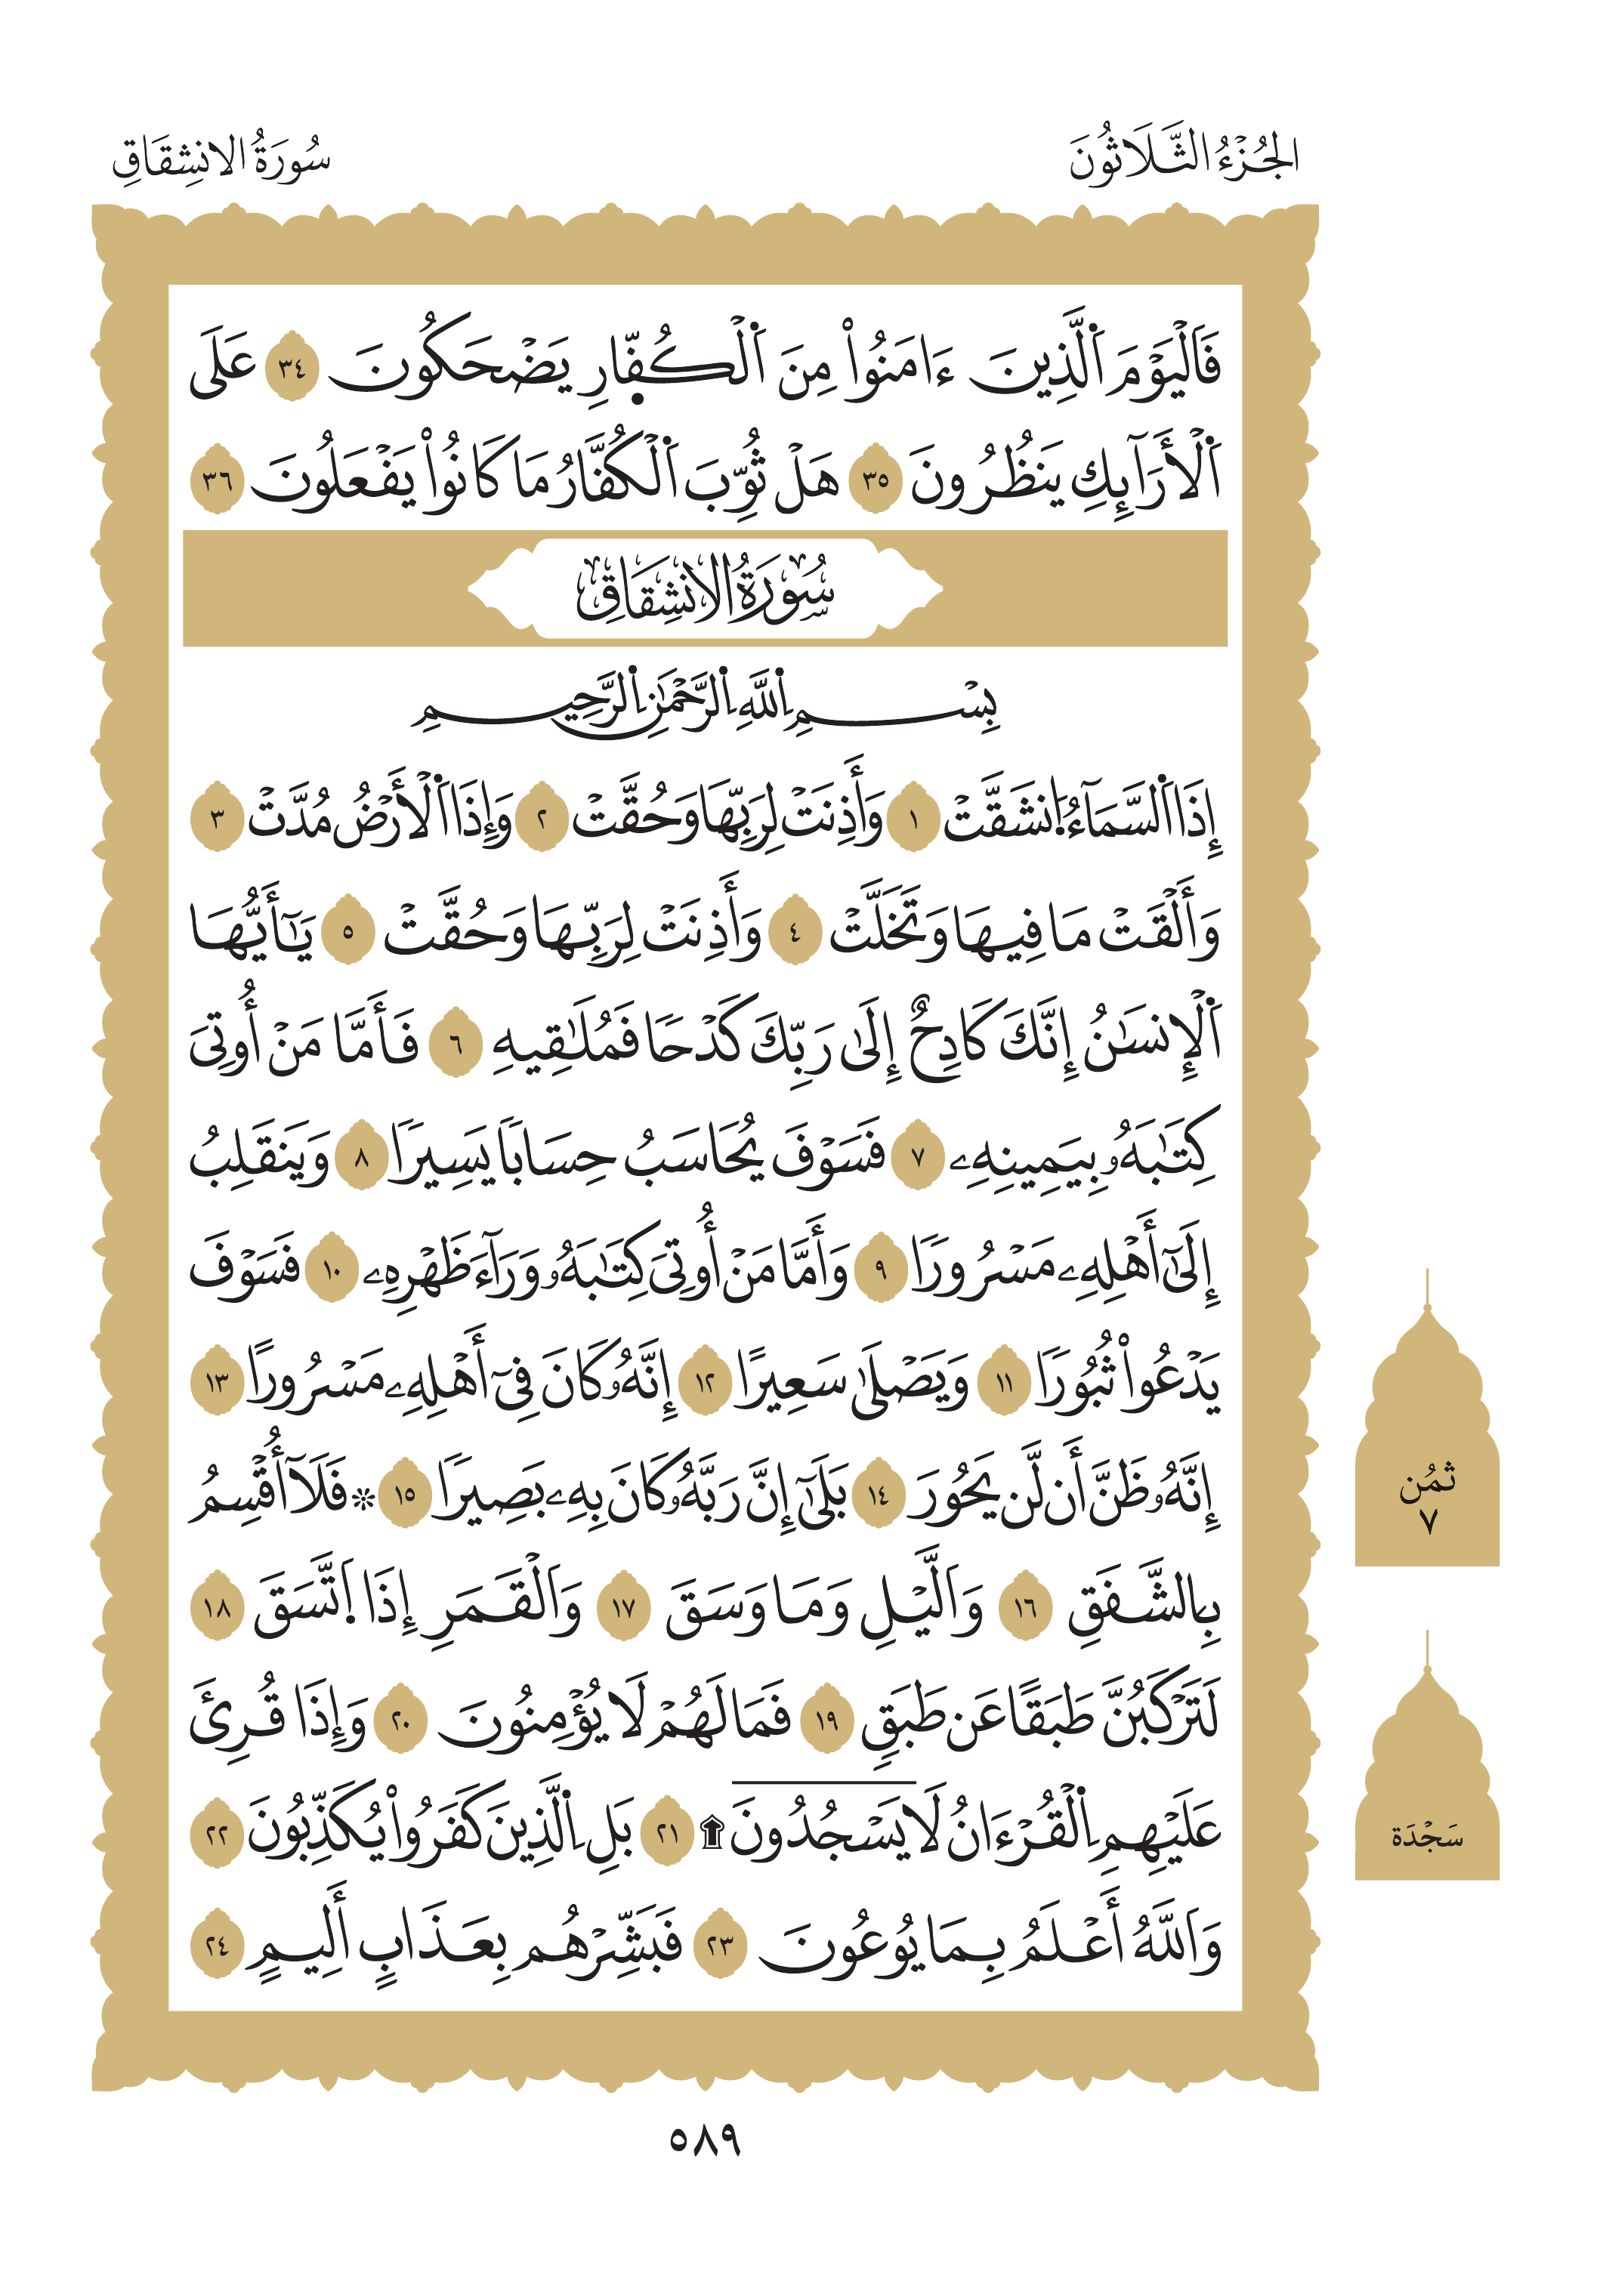 الجُزْءُ الثَّلَاثُونَ
سُورَةُ الانشِقَاقِ
فَاَلْيَوْمَ اَلَّذِينَ ءَامَنُواْ مِنَ اَلْكُفّ۪ارِ يَضْحَكُونَ ٣٤ عَلَى
اَلْأَرَآئِكِ يَنظُرُونَ ٣٥ هَلْ ثُوِّبَ اَلْكُفَّارُ مَا كَانُواْ يَفْعَلُونَ ٣٦
سُورَةُ الانشِقَاقِ
بِسْمِ اِللَّهِ اِلرَّحْمَٰنِ اِلرَّحِيمِ
إِذَا اَلسَّمَآءُ اُنشَقَّتْ ١ وَأَذِنَتْ لِرَبِّهَا وَحُقَّتْ ٢ وَإِذَا اَلْأَرْضُ مُدَّتْ ٣
وَأَلْقَتْ مَا فِيهَا وَتَخَلَّتْ ٤ وَأَذِنَتْ لِرَبِّهَا وَحُقَّتْ ٥ يَٰٓأَيُّهَا
اَلْإِنسَٰنُ إِنَّكَ كَادِحٌ إِلَىٰ رَبِّكَ كَدْحًا فَمُلَٰقِيهِ ٦ فَأَمَّا مَنْ أُوتِىَ
كِتَٰبَهُۥ بِيَمِينِهِۦ ٧ فَسَوْفَ يُحَاسَبُ حِسَابًا يَسِيرًا ٨ وَيَنقَلِبُ
إِلَىٰٓ أَهْلِهِۦ مَسْرُورًا ٩ وَأَمَّا مَنْ أُوتِىَ كِتَٰبَهُۥ وَرَآءَ ظَهْرِهِۦ ١٠ فَسَوْفَ
يَدْعُواْ ثُبُورًا ١١ وَيَصْلَىٰ سَعِيرًا ١٢ إِنَّهُۥ كَانَ فِىٓ أَهْلِهِۦ مَسْرُورًا ١٣
إِنَّهُۥ ظَنَّ أَن لَّن يَحُورَ ١٤ بَلَىٰٓ إِنَّ رَبَّهُۥ كَانَ بِهِۦ بَصِيرًا ١٥ ❊ فَلَآ أُقْسِمُ
بِالشَّفَقِ ١٦ وَاَلَّيْلِ وَمَا وَسَقَ ١٧ وَاَلْقَمَرِ إِذَا اَتَّسَقَ ١٨
لَتَرْكَبُنَّ طَبَقًا عَن طَبَقٍ ١٩ فَمَا لَهُمْ لَا يُؤْمِنُونَ ٢٠ وَإِذَا قُرِئَ
عَلَيْهِمِ اِلْقُرْءَانُ لَا يَسْجُدُونَ ۩ ٢١ بَلِ اِلَّذِينَ كَفَرُواْ يُكَذِّبُونَ ٢٢
وَاَللَّهُ أَعْلَمُ بِمَا يُوعُونَ ٢٣ فَبَشِّرْهُم بِعَذَابٍ أَلِيمٍ ٢٤
ثُمُن
٧
سَجْدَة
٥٨٩